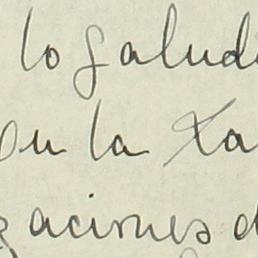 lo salud
en la Xa
zaciones d